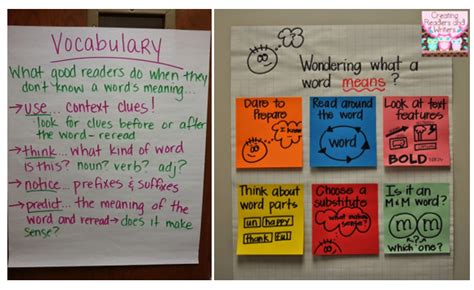 Vocabulary
What good readers do when they
don't know a word's meaning...
→ use... context clues!
look for clues before or after
the word - reread
→ think... what kind of word
is this? noun? verb? adj?
→ notice... prefixes & suffixes
→ predict... the meaning of the
word and reread → does it make
sense?
Creating
Readers and
Writers
Wondering what a
word means?
Dare to
Prepare
I know
Read around
the word
word
Look at text
features
BOLD
Think about
word parts
un happy
thank ful
Choose a
substitute
what makes
sense?
Is it an
M&M word?
m m
which one?